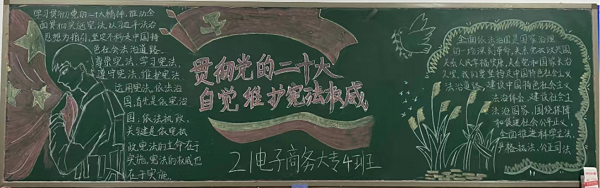 学习贯彻党的二十大精神,推动全
面贯彻实施宪法,以习近平法治
思想为指引,坚定不移走中国特
色社会主义法治道路
尊崇宪法、学习宪法、
遵守宪法、维护宪法、
运用宪法,依法治
国首先是依宪治
国,依法执政,
关键是依宪执
政宪法的生命在于
实施,宪法的权威也
在于实施。
贯彻党的二十大
自觉维护宪法权威
21电子商务大专4班
全面依法治国是国家治理
的一场深刻革命,关系党执政兴国
关系人民幸福安康,关系党和国家长治
久安,我们要坚持走中国特色社会主义
法治道路,建设中国特色社会主义
法治体系,建设社会主义
法治国家,围绕保障
和促进社会公平正义,
全面推进科学立法,
严格执法,公正司法